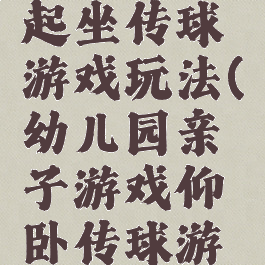 起坐传球
游戏玩法(
幼儿园亲
子游戏仰
卧传球游